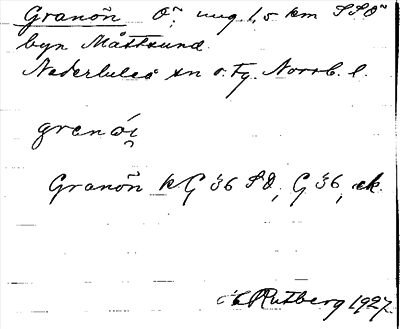 Granön Ö. ung 1,5 km SSO
byn Måttsund.
Nederluleå sn o. Fg. Norrb. l.
granöi
Granön kG 36 SO, G 36, ek.
Rutberg 1927